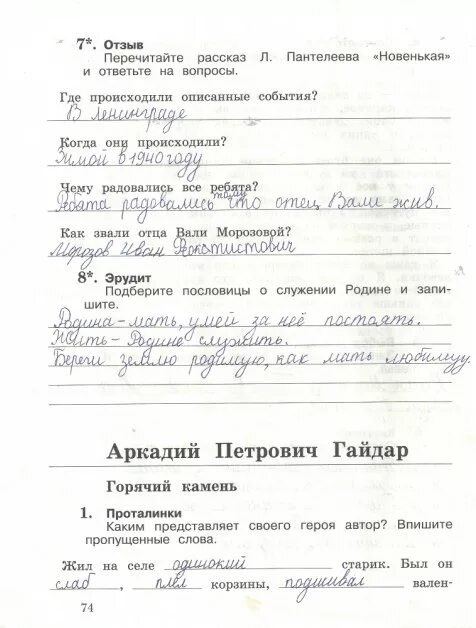 7*. Отзыв
Перечитайте рассказ Л. Пантелеева «Новенькая»
и ответьте на вопросы.
Где происходили описанные события?
В Ленинграде
Когда они происходили?
Зимой в 1940 году
Чему радовались все ребята?
Ребята радовались тому что отец Вали жив.
Как звали отца Вали Морозовой?
Морозов Иван Феоктистович
8*. Эрудит
Подберите пословицы о служении Родине и запи-
шите.
Родина-мать, умей за неё постоять.
Жить-Родине служить.
Береги землю родимую, как мать любимую.
Аркадий Петрович Гайдар
Горячий камень
1. Проталинки
Каким представляет своего героя автор? Впишите
пропущенные слова.
Жил на селе одинокий старик. Был он
слаб, плёл корзины, подшивал вален-
74